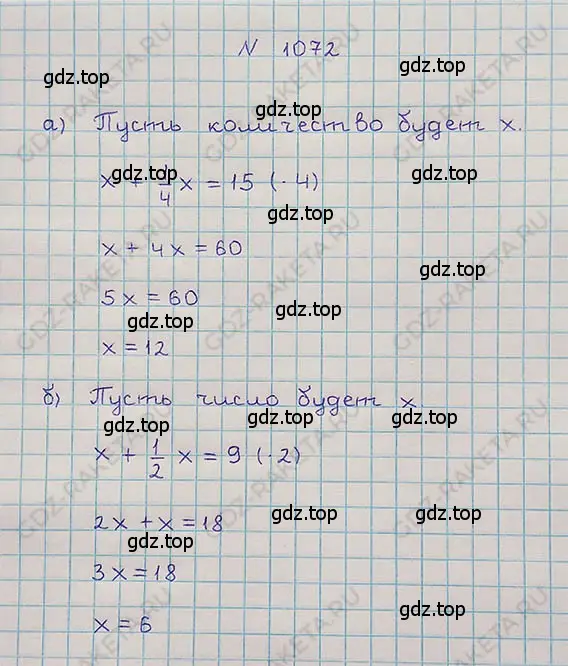 N 1072
gdz.top gdz.top
gdz.top
а) Пусть количество будет x.
gdz.top gdz.top
x + 1/4 x = 15 (· 4)
gdz.top
x + 4x = 60
gdz.top
5x = 60
gdz.top gdz.top
x = 12
б) Пусть число будет x.
gdz.top gdz.top gdz.top
x + 1/2 x = 9 (· 2)
gdz.top gdz.top
2x + x = 18
gdz.top
3x = 18
gdz.top
x = 6
GDZ-RAKETA.RU